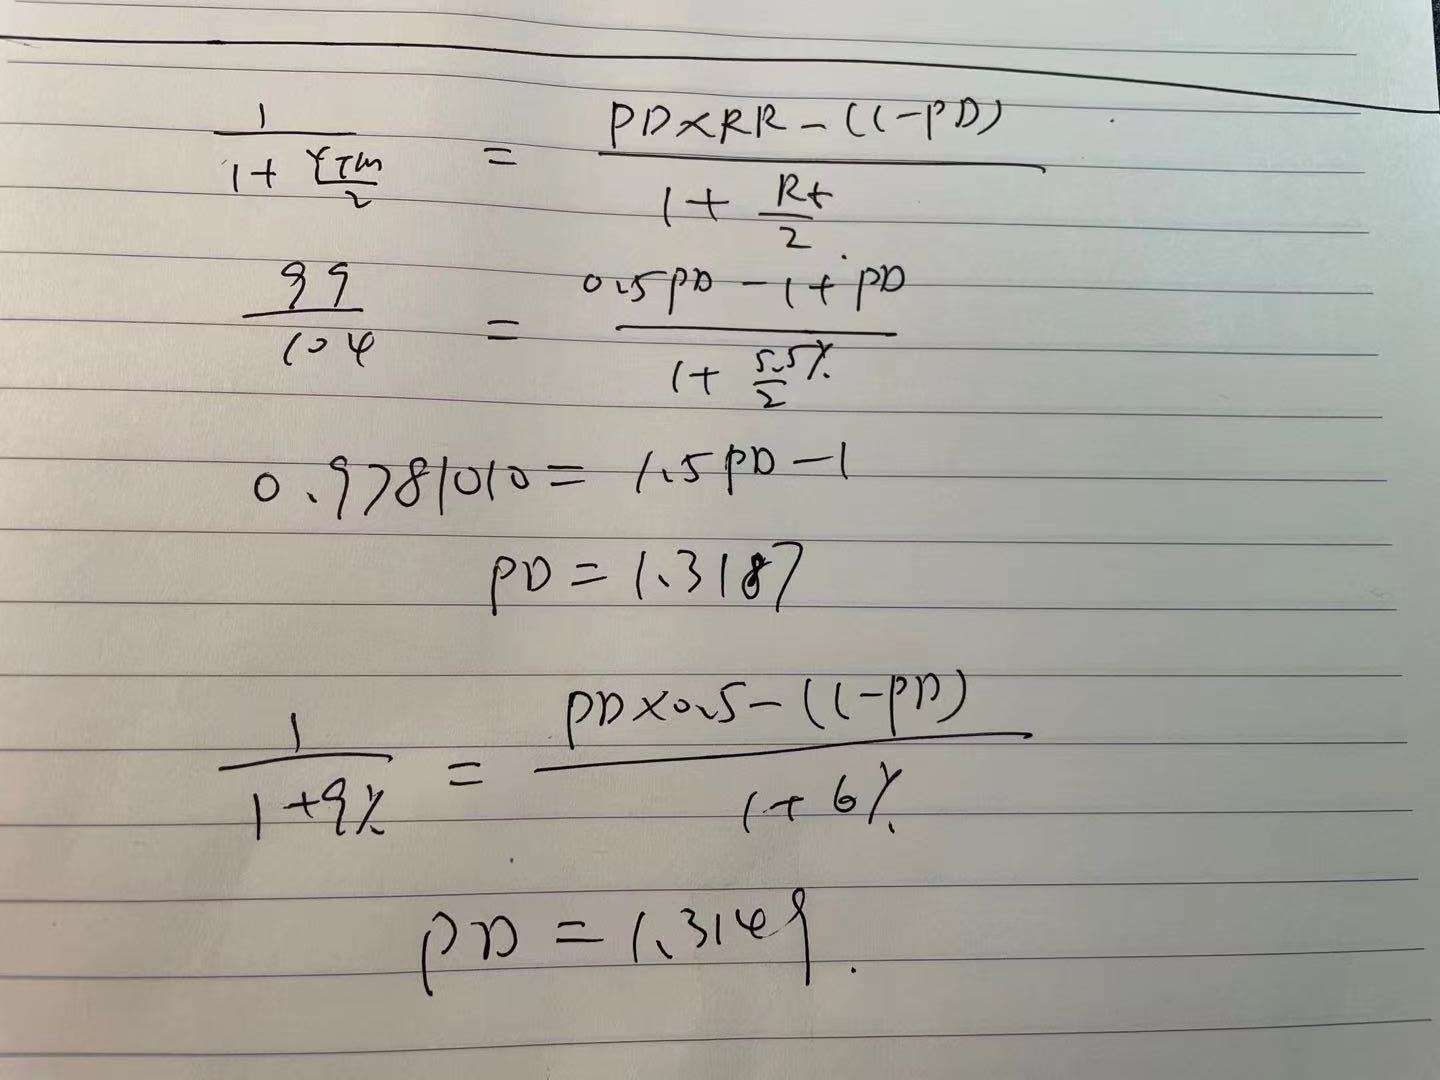 1 / (1 + YTM/2) = (PD×RR-(1-PD)) / (1 + Rf/2)
99 / 104 = (0.5PD-1+PD) / (1 + 5.5%/2)
0.9781010 = 1.5PD-1
PD = 1.3187
1 / (1+9%) = (PD×0.5-(1-PD)) / (1+6%)
PD = 1.3149.